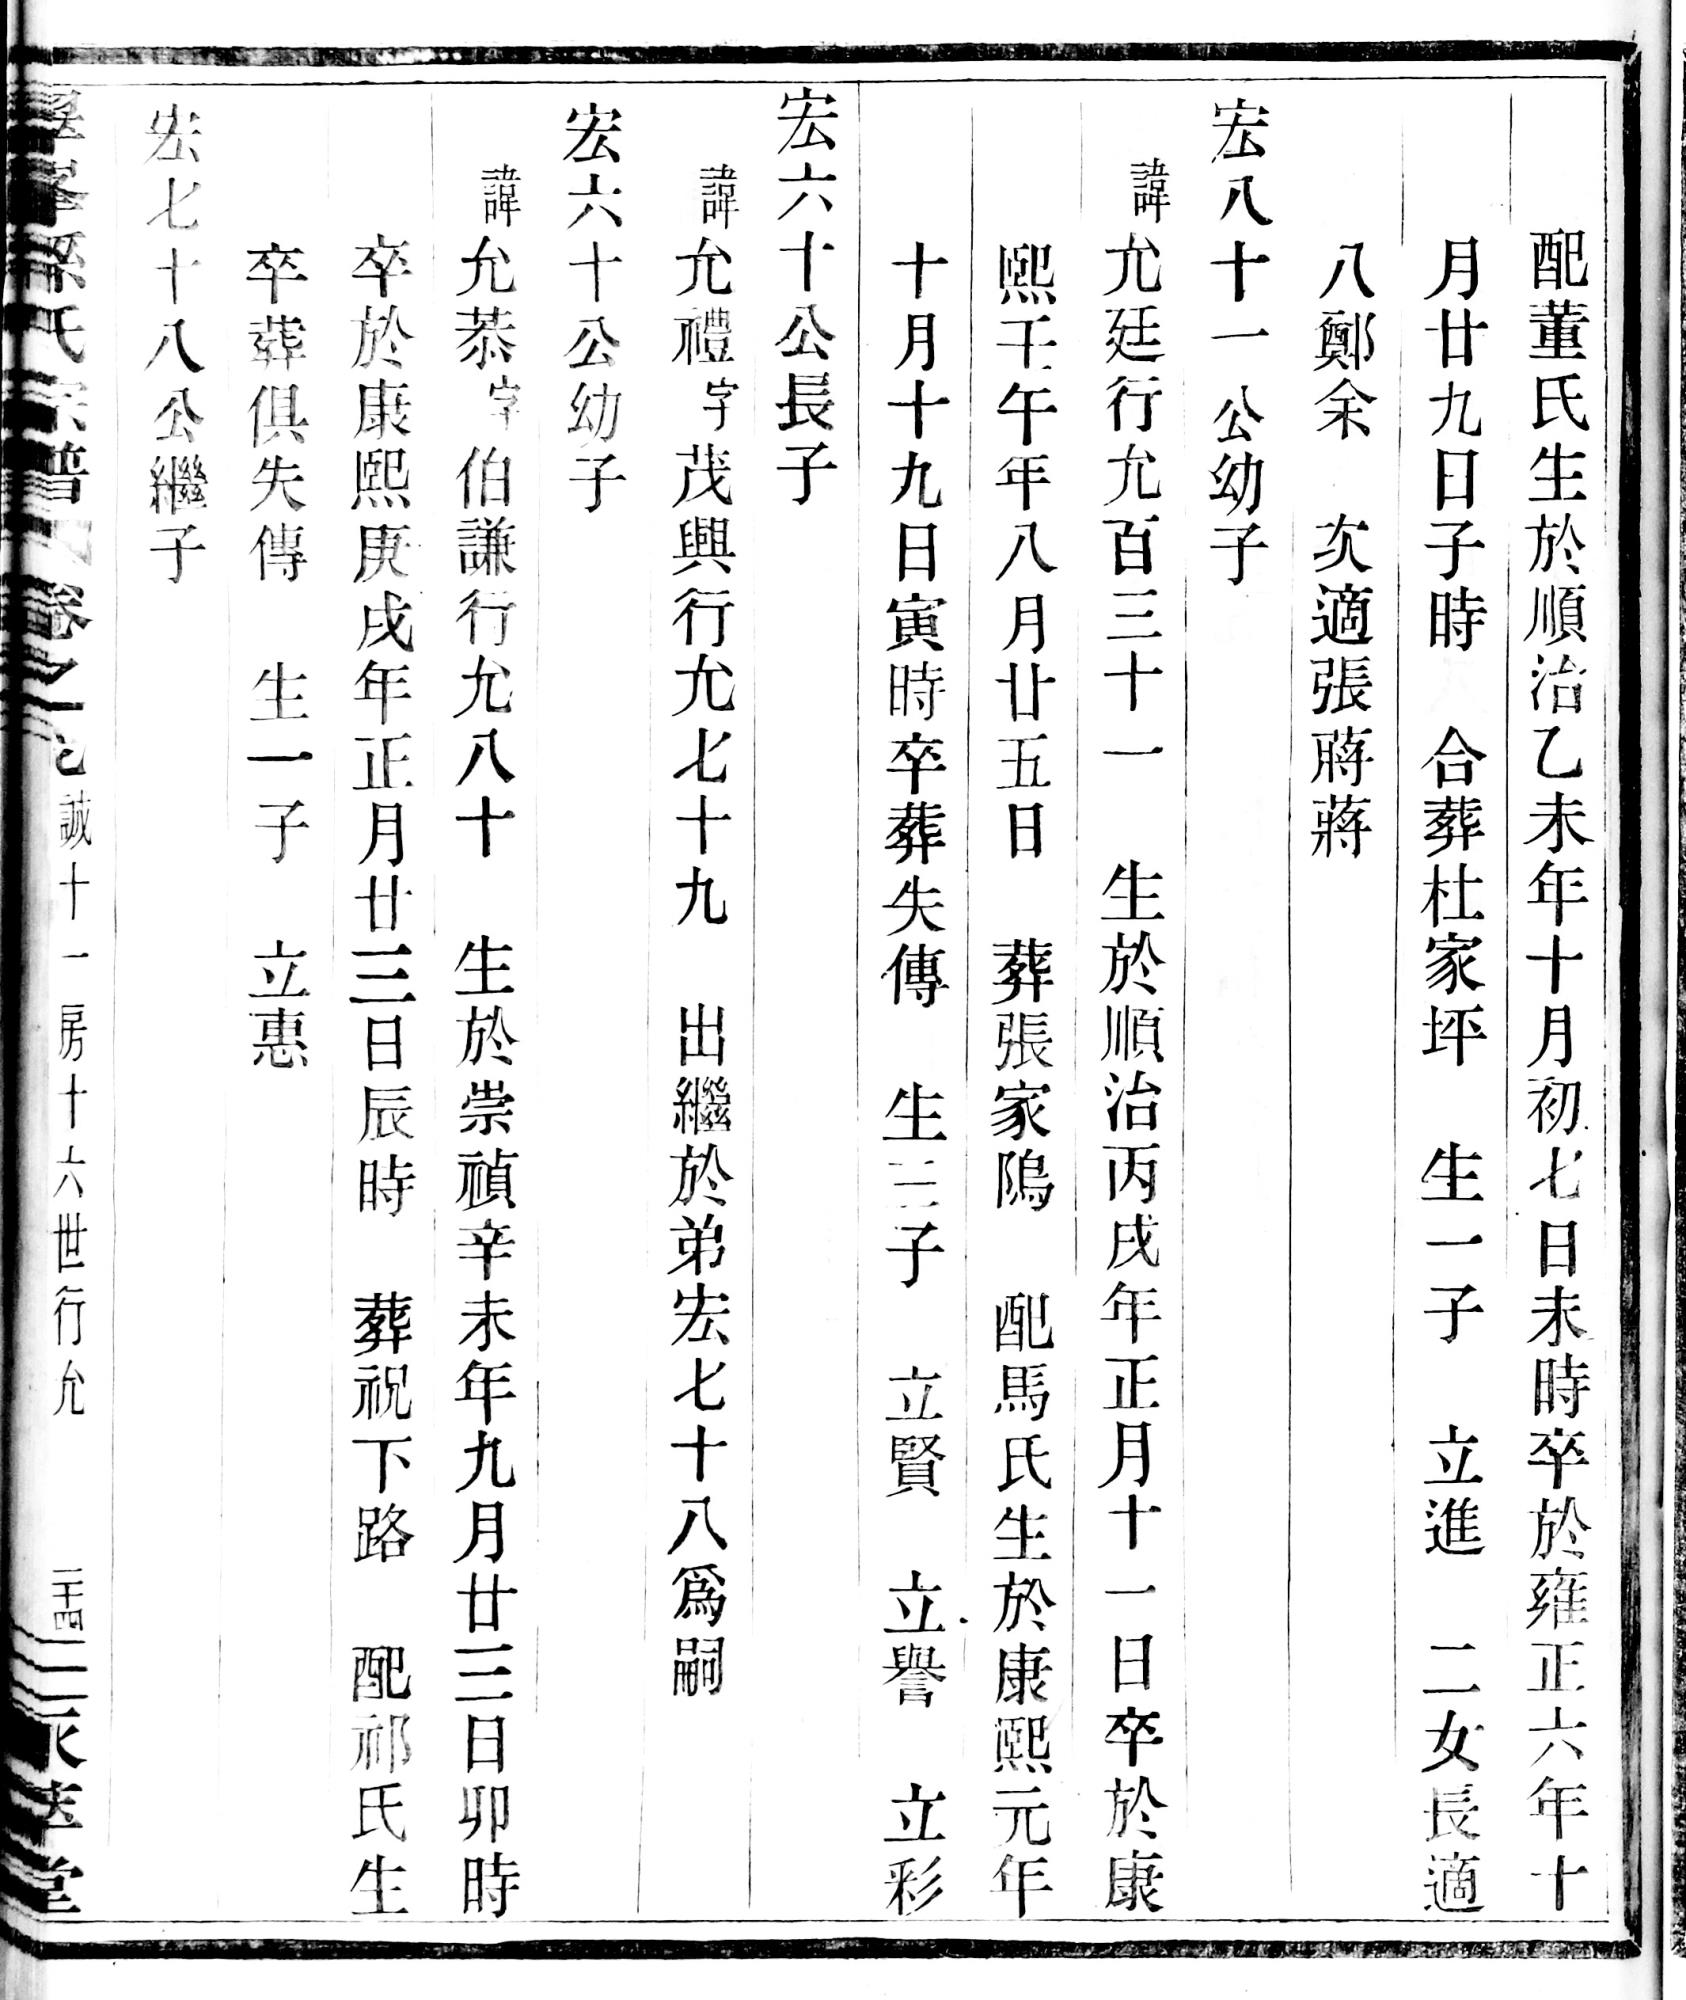 配董氏生於順治乙未年十月初七日未時卒於雍正六年十
月廿九日子時 合葬杜家坪 生一子 立進 二女長適
八鄭余 次適張蔣蔣
宏八十一公幼子
諱允廷行允百三十一 生於順治丙戌年正月十一日卒於康
熙壬午年八月廿五日 葬張家隝 配馬氏生於康熙元年
十月十九日寅時卒葬失傳 生三子 立賢 立譽 立彩
宏六十公長子
諱允禮字茂興行允七十九 出繼於弟宏七十八爲嗣
宏六十公幼子
諱允恭字伯謙行允八十 生於崇禎辛未年九月廿三日卯時
卒於康熙庚戌年正月廿三日辰時 葬祝下路 配祁氏生
卒葬俱失傳 生一子 立惠
宏七十八公繼子
孫氏宗譜 卷之 誠十一房十六世行允 二十四 堂